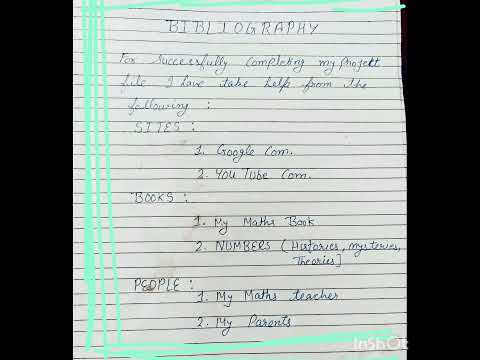 BIBLIOGRAPHY
For Successfully Completing my Project
file I have take help from the
following :
SITES :
1. Google Com.
2. YOU Tube Com.
BOOKS :
1. My Maths Book
2. NUMBERS (Histories, mysteries,
Theories]
PEOPLE :
1. My Maths teacher
2. My Parents
InShOt